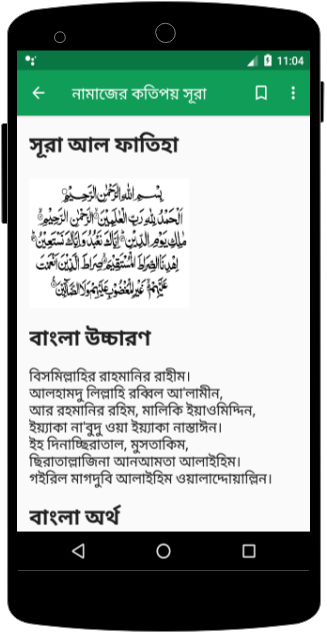 11:04
নামাজের কতিপয় সূরা
সূরা আল ফাতিহা
بِسْمِ اللهِ الرَّحْمٰنِ الرَّحِيْمِ
اَلْحَمْدُ لِلّٰهِ رَبِّ الْعٰلَمِيْنَ الرَّحْمٰنِ الرَّحِيْمِ
مٰلِكِ يَوْمِ الدِّيْنِ اِيَّاكَ نَعْبُدُ وَاِيَّاكَ نَسْتَعِيْنُ
اِهْدِنَا الصِّرَاطَ الْمُسْتَقِيْمَ صِرَاطَ الَّذِيْنَ اَنْعَمْتَ
عَلَيْهِمْ غَيْرِ الْمَغْضُوْبِ عَلَيْهِمْ وَلَا الضَّالِّيْنَ
বাংলা উচ্চারণ
বিসমিল্লাহির রাহমানির রাহীম।
আলহামদু লিল্লাহি রব্বিল আ'লামীন,
আর রহমানির রহিম, মালিকি ইয়াওমিদ্দিন,
ইয়্যাকা না'বুদু ওয়া ইয়্যাকা নাস্তাঈন।
ইহ দিনাচ্ছিরাতাল, মুসতাকিম,
ছিরাতাল্লাজিনা আনআমতা আলাইহিম।
গইরিল মাগদুবি আলাইহিম ওয়ালাদ্দোয়াল্লিন।
বাংলা অর্থ